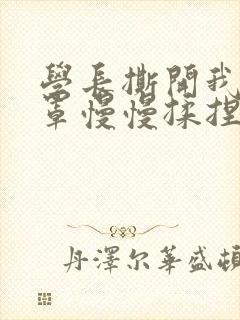 學長撕開我
罩慢慢揉捏
丹澤尔華盛頓